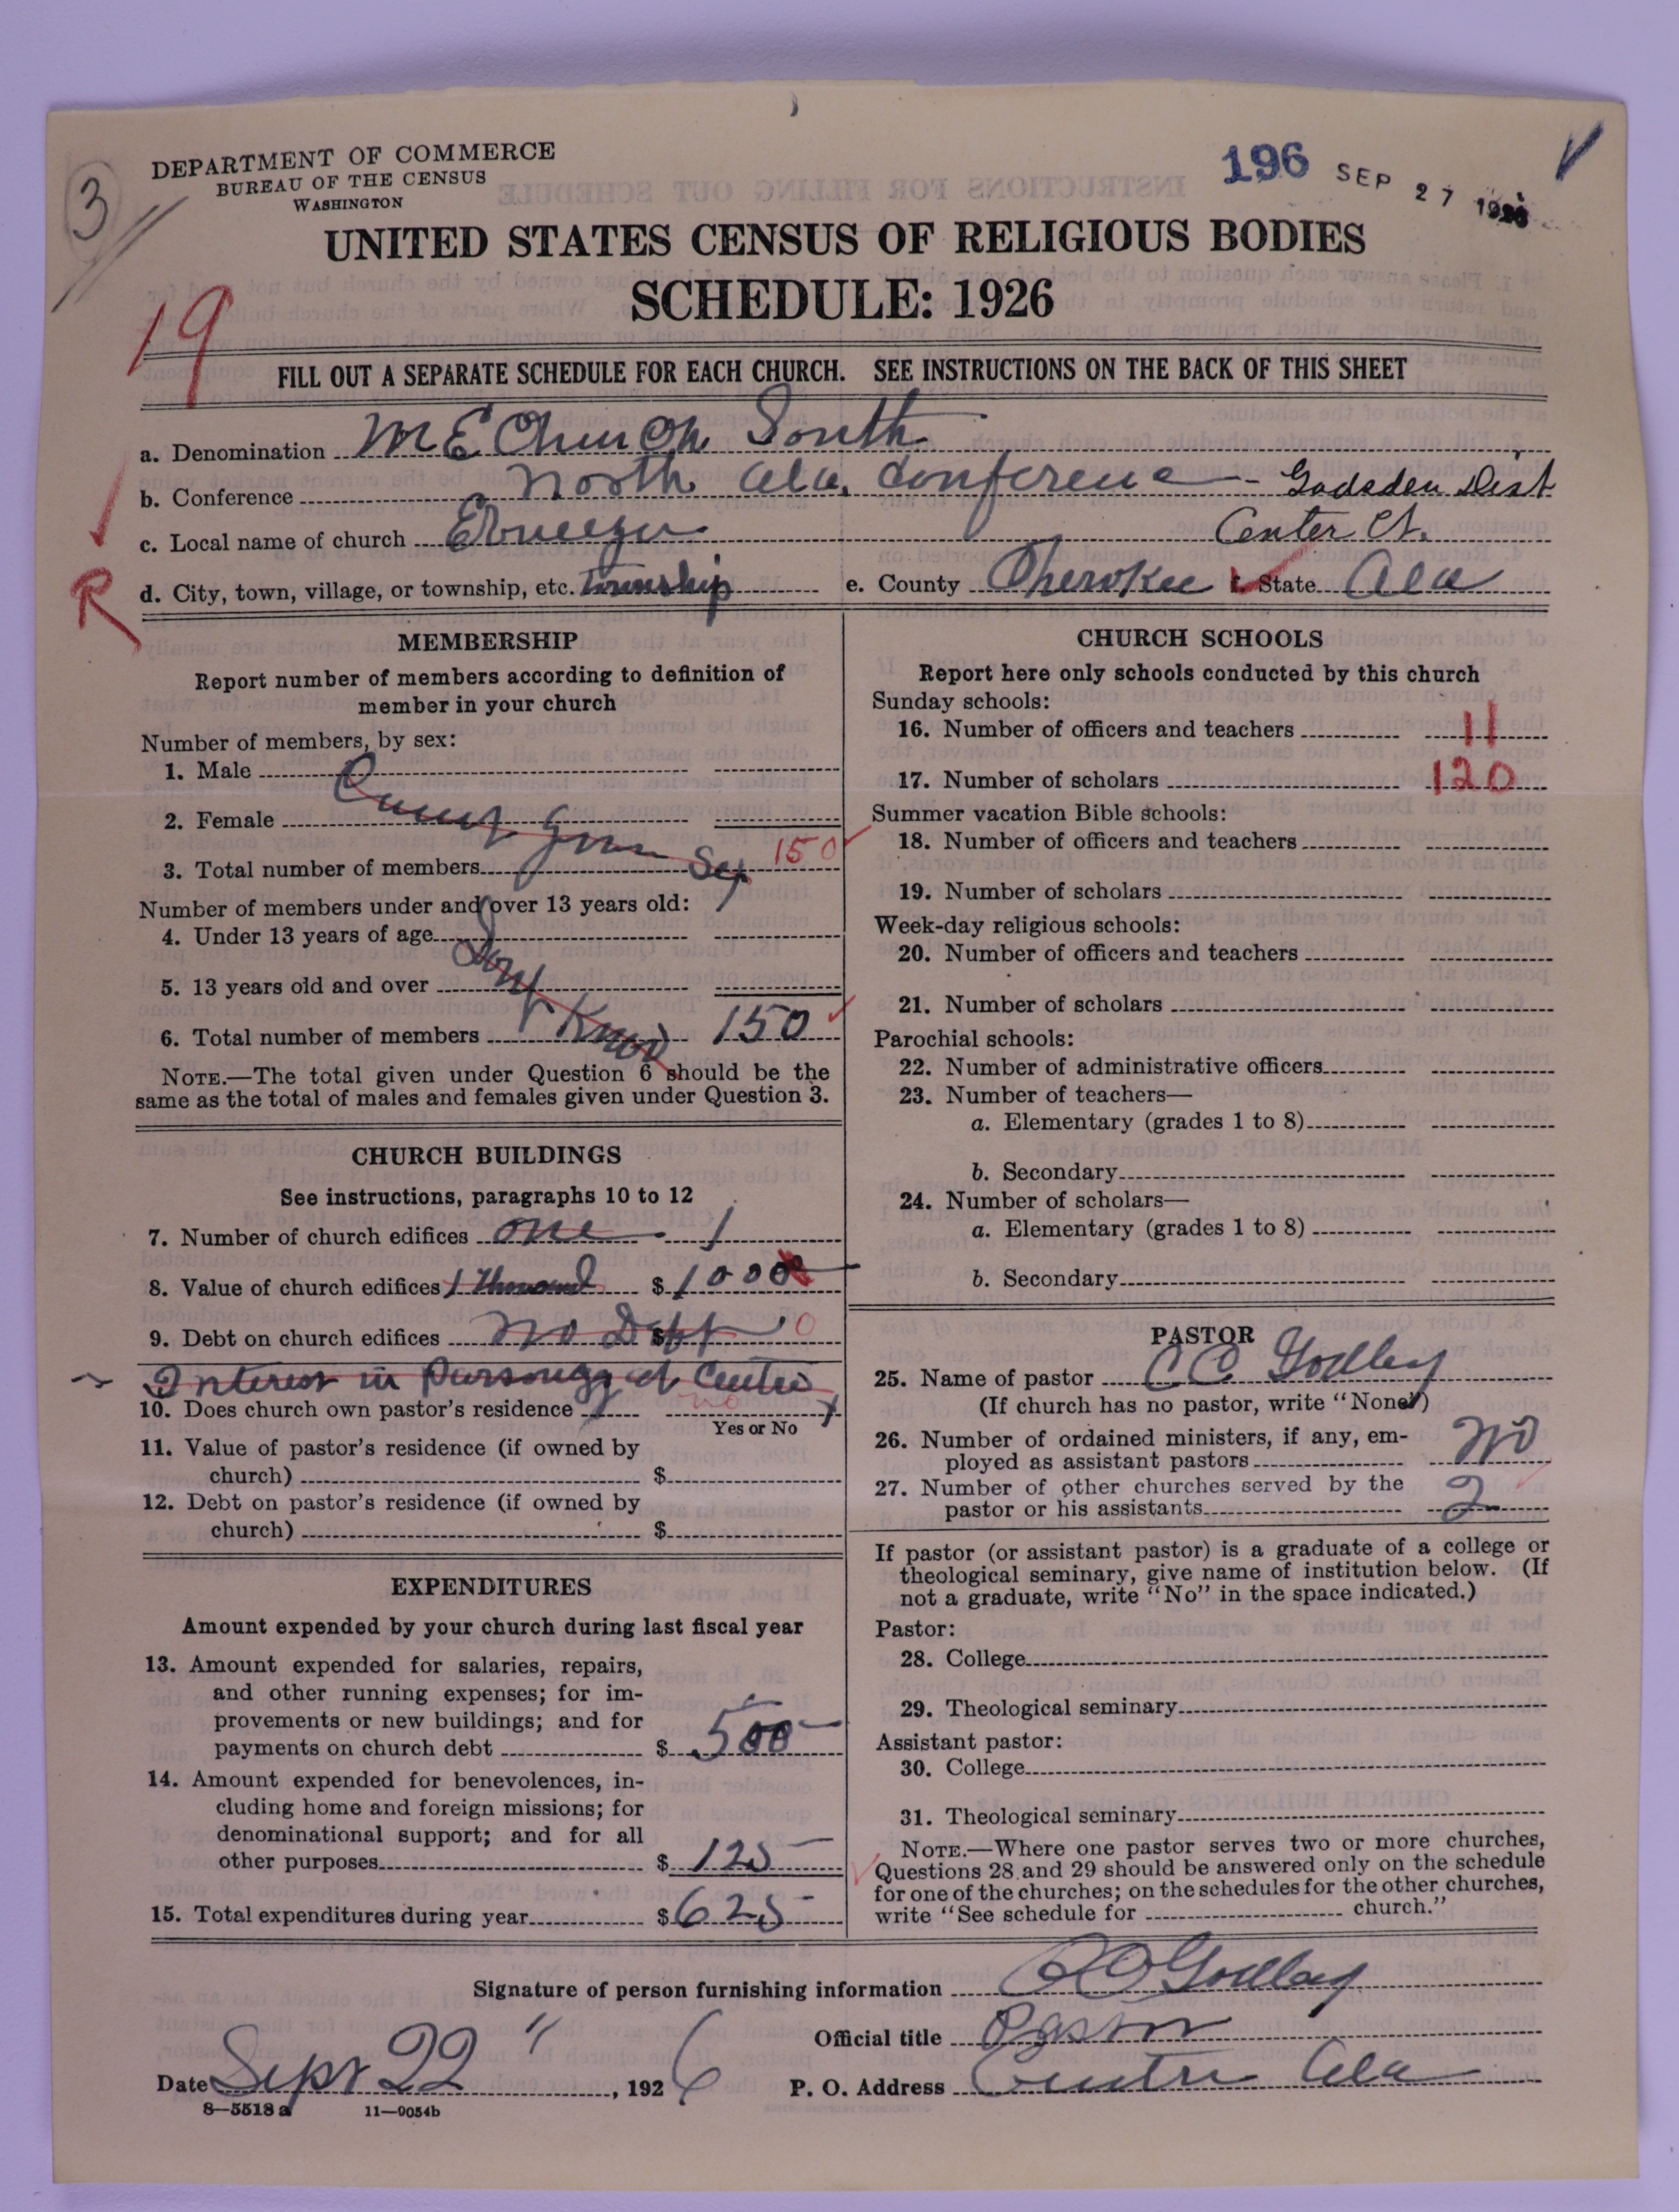 3
DEPARTMENT OF COMMERCE
BUREAU OF THE CENSUS
WASHINGTON
196 SEP 27 1926
UNITED STATES CENSUS OF RELIGIOUS BODIES
SCHEDULE: 1926
19
FILL OUT A SEPARATE SCHEDULE FOR EACH CHURCH. SEE INSTRUCTIONS ON THE BACK OF THIS SHEET
a. Denomination M E Church South
b. Conference North Ala. Conference - Gadsden Dist
c. Local name of church Ebneezer Center Ct.
R
d. City, town, village, or township, etc. Township e. County Cherokee f. State Ala
MEMBERSHIP
Report number of members according to definition of
member in your church
Number of members, by sex:
1. Male
2. Female
Cannot Give Sep
3. Total number of members 150
Number of members under and over 13 years old:
4. Under 13 years of age
5. 13 years old and over
Dont Know
6. Total number of members 150
NOTE.—The total given under Question 6 should be the
same as the total of males and females given under Question 3.
CHURCH BUILDINGS
See instructions, paragraphs 10 to 12
7. Number of church edifices one 1
8. Value of church edifices 1 Thousand $ 1000
9. Debt on church edifices No Debt $ 0
Interest in Parsonage at Centre
10. Does church own pastor's residence no
Yes or No
11. Value of pastor's residence (if owned by
church) $
12. Debt on pastor's residence (if owned by
church) $
EXPENDITURES
Amount expended by your church during last fiscal year
13. Amount expended for salaries, repairs,
and other running expenses; for im-
provements or new buildings; and for
payments on church debt $ 500
14. Amount expended for benevolences, in-
cluding home and foreign missions; for
denominational support; and for all
other purposes $ 125
15. Total expenditures during year $ 625
CHURCH SCHOOLS
Report here only schools conducted by this church
Sunday schools:
16. Number of officers and teachers 11
17. Number of scholars 120
Summer vacation Bible schools:
18. Number of officers and teachers
19. Number of scholars
Week-day religious schools:
20. Number of officers and teachers
21. Number of scholars
Parochial schools:
22. Number of administrative officers
23. Number of teachers—
a. Elementary (grades 1 to 8)
b. Secondary
24. Number of scholars—
a. Elementary (grades 1 to 8)
b. Secondary
PASTOR
25. Name of pastor C C Godbey
(If church has no pastor, write "None")
26. Number of ordained ministers, if any, em-
ployed as assistant pastors No
27. Number of other churches served by the
pastor or his assistants 2
If pastor (or assistant pastor) is a graduate of a college or
theological seminary, give name of institution below. (If
not a graduate, write "No" in the space indicated.)
Pastor:
28. College
29. Theological seminary
Assistant pastor:
30. College
31. Theological seminary
NOTE.—Where one pastor serves two or more churches,
Questions 28 and 29 should be answered only on the schedule
for one of the churches; on the schedules for the other churches,
write "See schedule for church."
Signature of person furnishing information C C Godbey
Official title Pastor
Date Sept 22, 1926 P. O. Address Centre Ala
8—5518 a 11—9054b